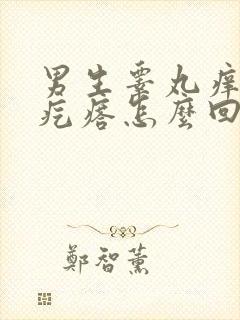 男生睾丸痒
疙瘩怎麼回
鄭智薰